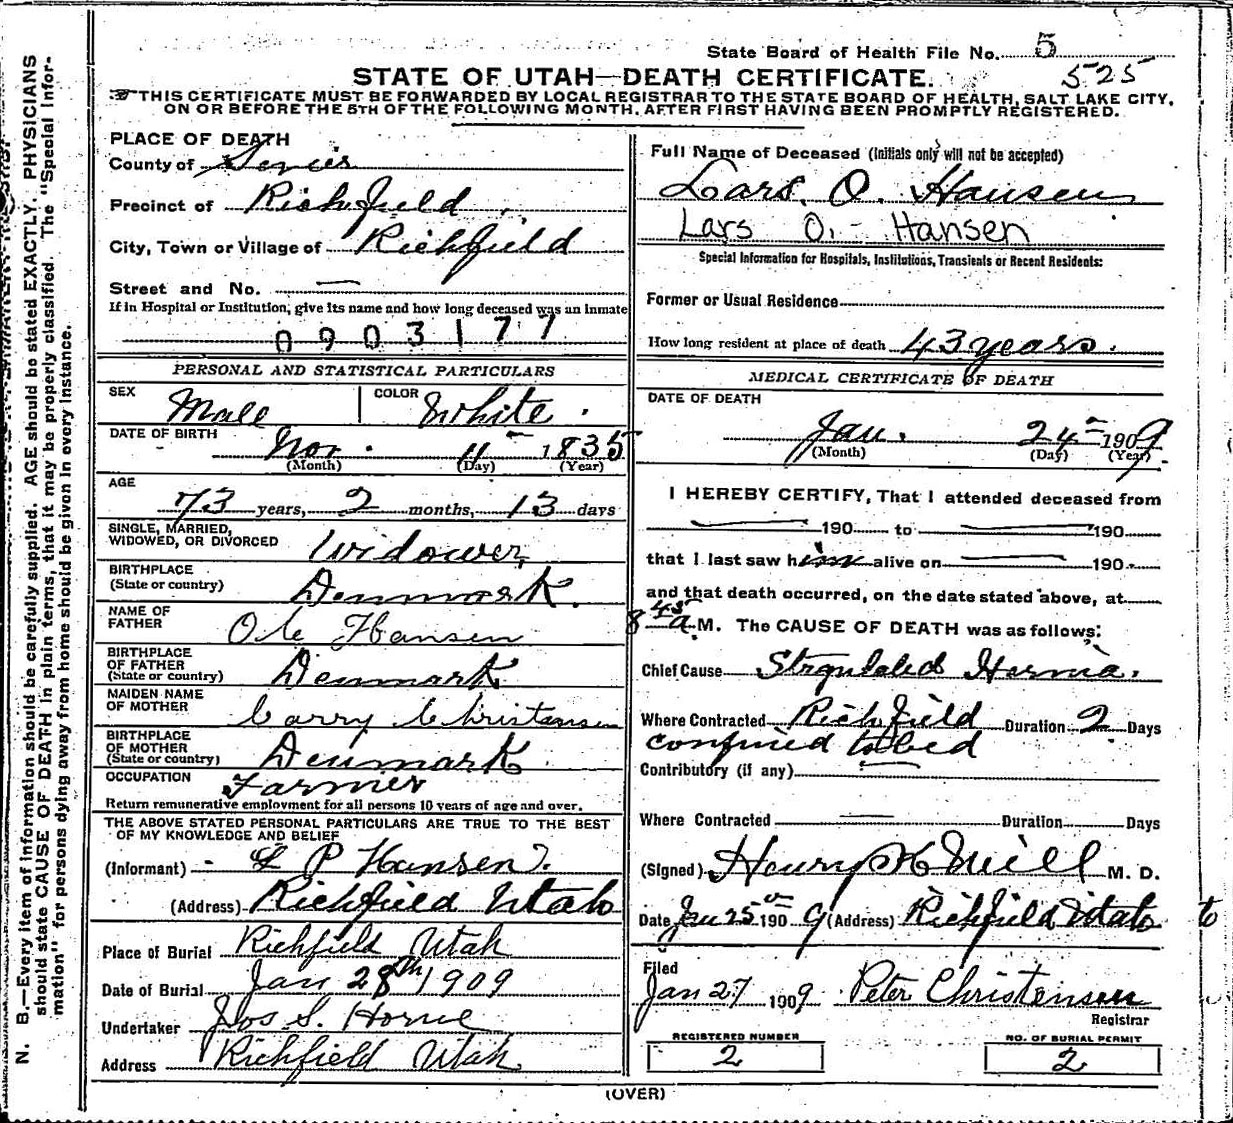 State Board of Health File No. 5
525
STATE OF UTAH—DEATH CERTIFICATE.
THIS CERTIFICATE MUST BE FORWARDED BY LOCAL REGISTRAR TO THE STATE BOARD OF HEALTH, SALT LAKE CITY,
ON OR BEFORE THE 5TH OF THE FOLLOWING MONTH, AFTER FIRST HAVING BEEN PROMPTLY REGISTERED.
PLACE OF DEATH
County of Sevier
Precinct of Richfield
City, Town or Village of Richfield
Street and No. —
If in Hospital or Institution, give its name and how long deceased was an inmate
0903177
PERSONAL AND STATISTICAL PARTICULARS
SEX Male COLOR White
DATE OF BIRTH Nov. 11 1835
(Month) (Day) (Year)
AGE
73 years, 2 months, 13 days
SINGLE, MARRIED,
WIDOWED, OR DIVORCED Widower
BIRTHPLACE
(State or country) Denmark.
NAME OF
FATHER Ole Hansen
BIRTHPLACE
OF FATHER
(State or country) Denmark
MAIDEN NAME
OF MOTHER Carry Christensen
BIRTHPLACE
OF MOTHER
(State or country) Denmark
OCCUPATION Farmer
Return remunerative employment for all persons 10 years of age and over.
THE ABOVE STATED PERSONAL PARTICULARS ARE TRUE TO THE BEST
OF MY KNOWLEDGE AND BELIEF
(Informant) L P Hansen
(Address) Richfield Utah
Place of Burial Richfield Utah
Date of Burial Jan 28th 1909
Undertaker Jos S. Horne
Address Richfield Utah
Full Name of Deceased (Initials only will not be accepted)
Lars. O. Hansen
Lars O. Hansen
Special Information for Hospitals, Institutions, Transients or Recent Residents:
Former or Usual Residence
How long resident at place of death 43 years.
MEDICAL CERTIFICATE OF DEATH
DATE OF DEATH
Jan. 24 1909
(Month) (Day) (Year)
I HEREBY CERTIFY, That I attended deceased from
190 to 190
that I last saw him alive on 190
and that death occurred, on the date stated above, at
8 45 a M. The CAUSE OF DEATH was as follows:
Chief Cause Hernia.
Where Contracted Richfield Duration 2 Days
confined to bed
Contributory (if any) —
Where Contracted — Duration Days
(Signed) Henry M. D.
Date Jan 25 1909 (Address) Richfield Utah to
Filed
Jan 27 1909. Peter Christensen
Registrar
REGISTERED NUMBER
2
NO. OF BURIAL PERMIT
2
(OVER)
N. B.—Every item of information should be carefully supplied. AGE should be stated EXACTLY. PHYSICIANS
should state CAUSE OF DEATH in plain terms, that it may be properly classified. The "Special Infor-
mation" for persons dying away from home should be given in every instance.